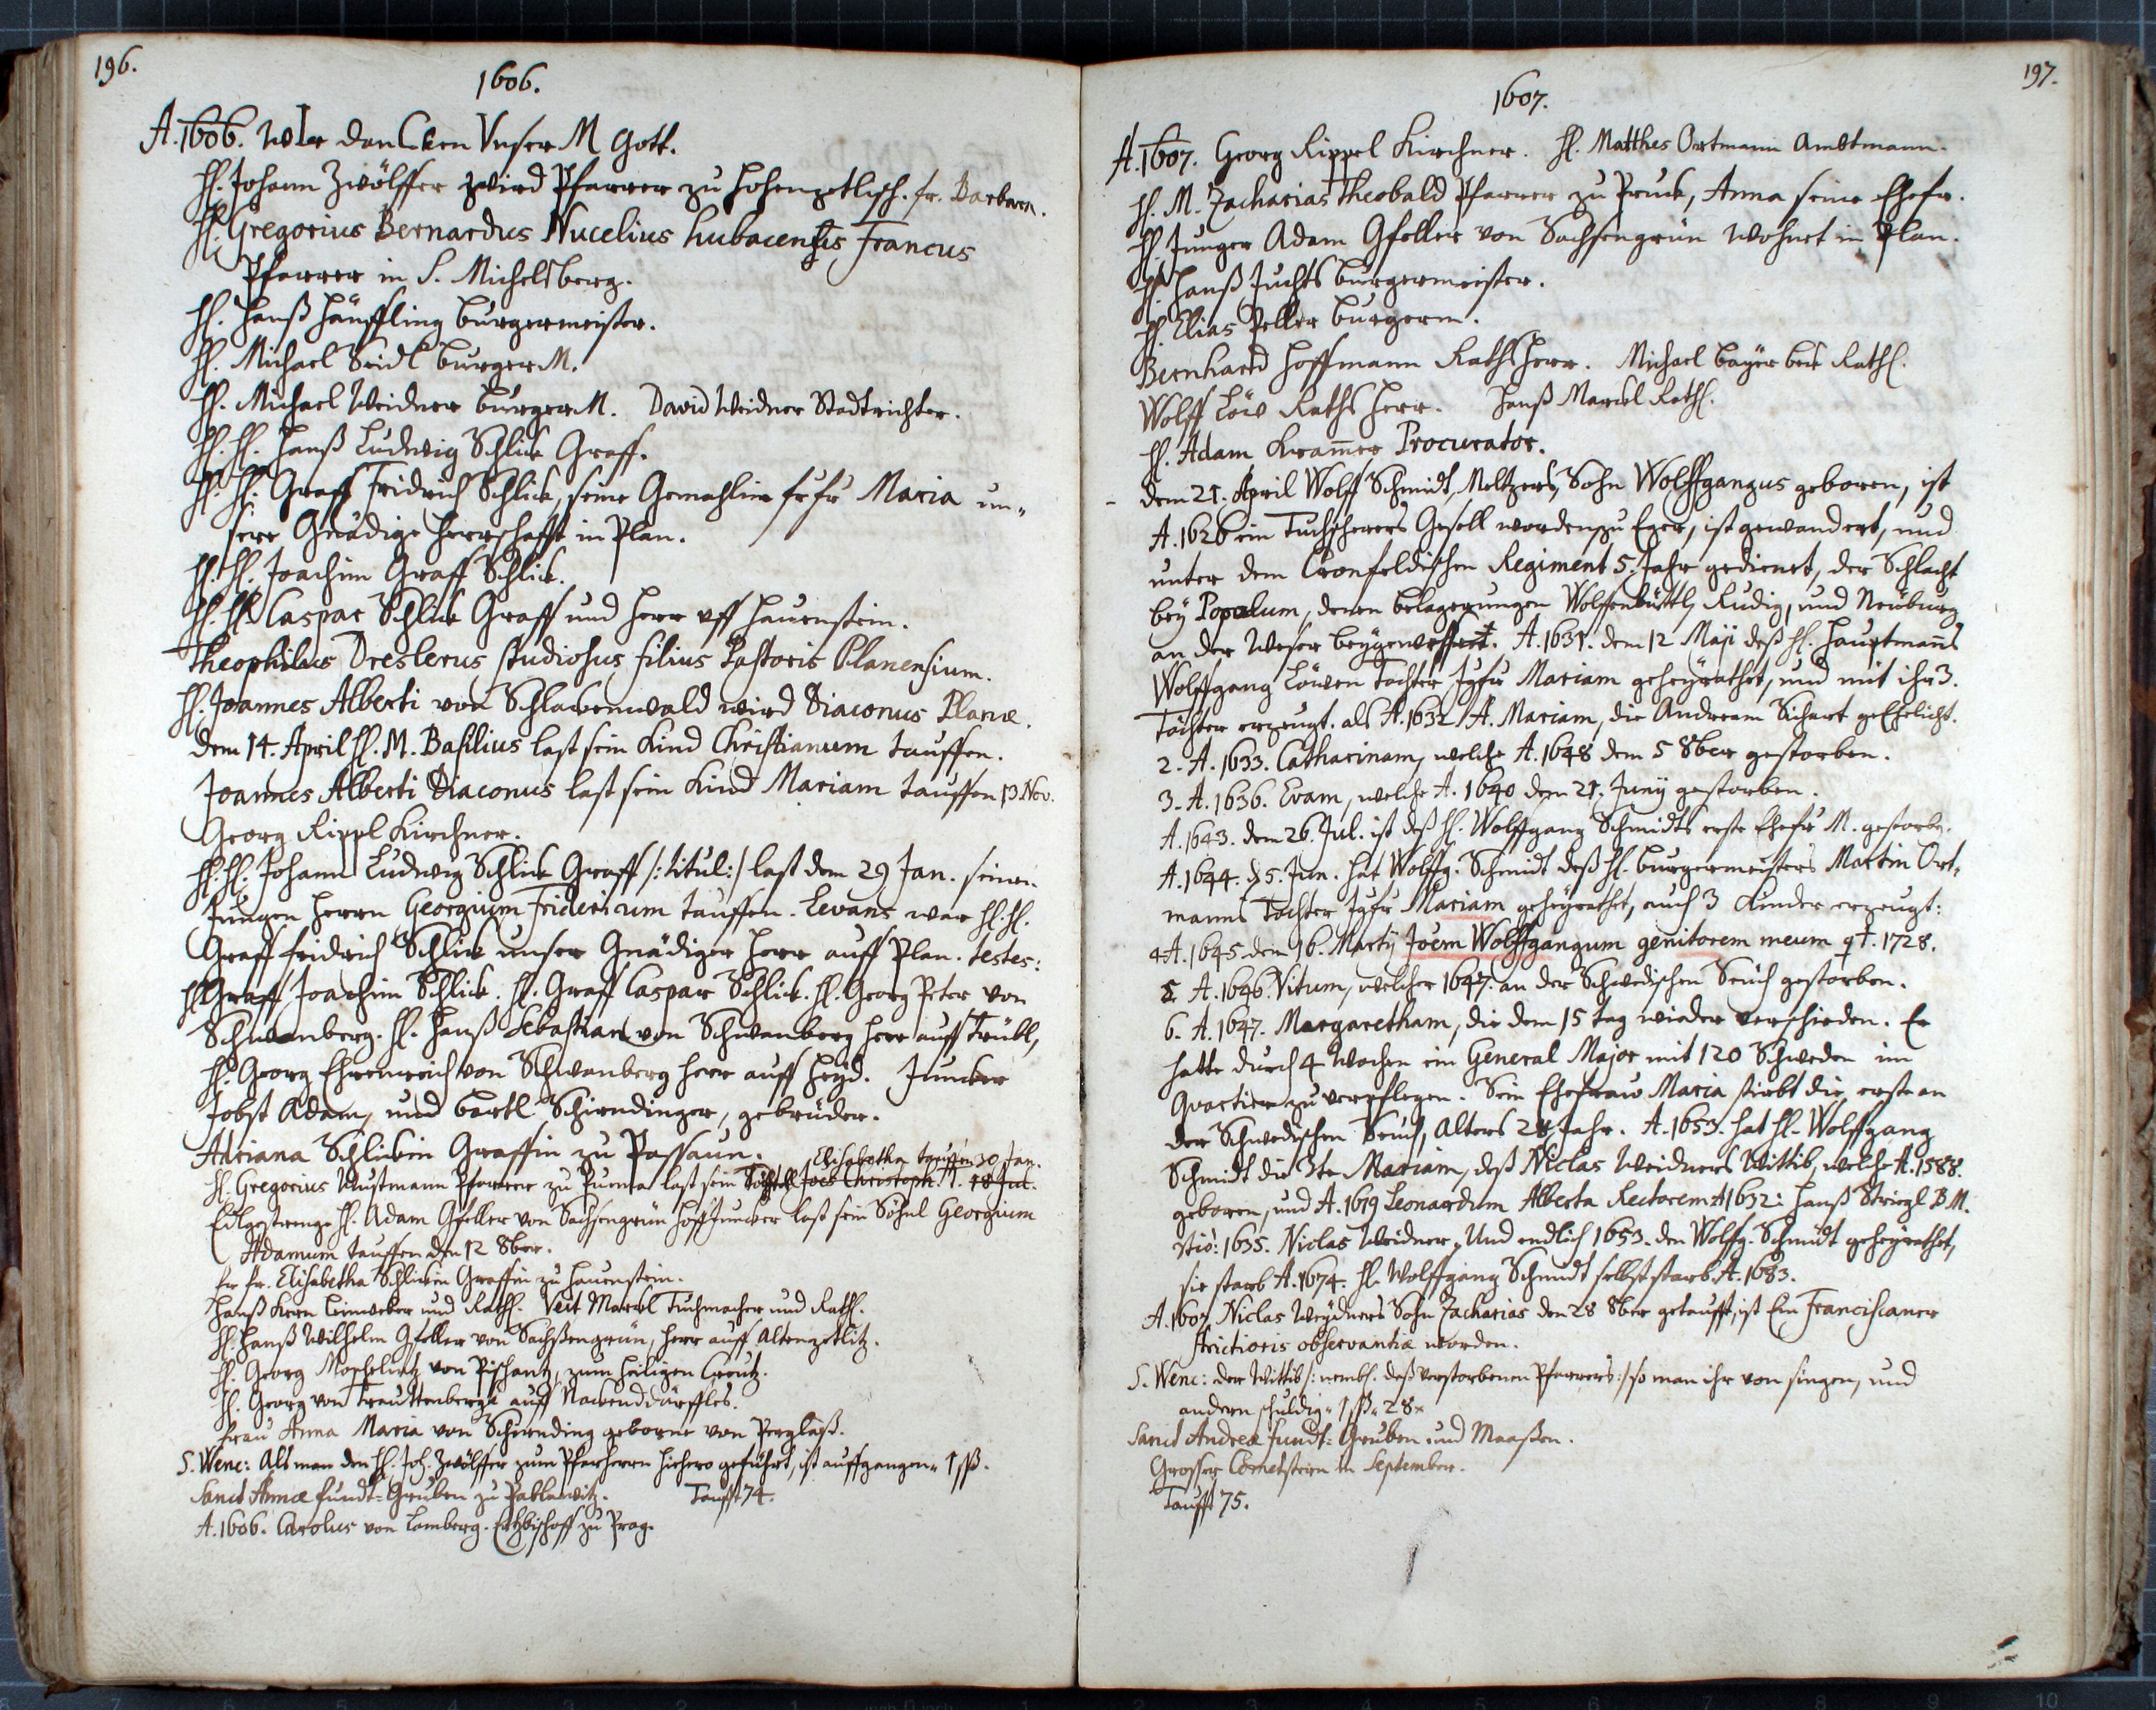 196.
1606.
A. 1606. WIr danCken Vnser M Gott.
H. Johann Zwölffer wird Pfarrer zu Hohenzetlisch. fr. Barbara.
H. Gregorius Bernardus Nucelius Hubacensis, Francus
Pfarrer in S. Michelsberg.
H. Hanß Häuffling Burgermeister.
H. Michael Seidl Burger M.
H. Michael Weidner Burger M. David Weidner Stadtrichter.
H. H. Hanß Ludwig Schlick Graff.
H. H. Graff Fridrich Schlick, seine Gemahlin fr fr Maria un-
sere Gnädige Herrschafft in Plan.
H. H. Joachim Graff Schlick.
H. H. Caspar Schlick Graff und Herr uff Hauenstein.
Theophilus Dreslerus studiosus, filius Pastoris Planensium.
H. Joannes Alberti von Schlackenwald wird Diaconus Planæ.
dem 14. April H. M. Basilius last sein Kind Christianum tauffen.
Joannes Alberti Diaconus last sein Kind Mariam tauffen 13 Nov.
Georg Rippl Kirchner.
H. H. Johann Ludwig Schlick Graff /:titul:/ last dem 29 Jan. seinen
Jungen Herrn Georgium Fridericum tauffen. Levans war H. H.
Graff Fridrich Schlick unser Gnädiger Herr auff Plan. testes:
H Graff Joachim Schlick. H. Graff Caspar Schlick. H. Georg Peter von
Schwanberg. H. Hanß Sebastian von Schwanberg Herr auff Trübl,
H. Georg Ehrenreich von Schwanberg Herr auff Heyd. Juncker
Jobst Adam, und Bartl Schirndinger, gebrüder.
Adriana Schlickin Graffin zu Passaun.
Elisabetha tauffen 30 Jan.
H. Gregorius Wustmann Pfarrer zu Purna last sein Töchterl Joes Christoph. A. 18 Jul.
Edlgestrenge H. Adam Gfeller von Sachsengrün Hoff Juncker last sein Söhnl Georgium
Adamum tauffen den 12 8ber.
Fr fr. Elisabetha Schlickin Graffin zu Hauenstein.
Hanß Kern Leinweber und Rathß. Veit Marcel Tuchmacher und Rathß.
H. Hanß Wilhelm Gfeller von Sachßengrün, Herr auff Altenzetlitz.
H. Georg Moschelitz von Pischantz, zum Heiligen Creutz.
H. Georg von Trauttenberge auff Nackenddörffles.
Frau Anna Maria von Schirnding geborne von Perglaß.
S. Wenc: Alß man den H. Joh. Zwölffer zum Pfarherrn hiehero geführt, ist auffgangen 1 ß.
Sanct Annæ fundt-Gruben zu Pablawitz. Taufft 74.
A. 1606. Carolus von Lamberg. Ertzbischoff zu Prag.
197.
1607.
A. 1607. Georg Rippel Kirchner. H. Matthes Ortmann Ambtmann.
H. M. Zacharias Theobald Pfarrer zu Pruck, Anna seine Ehefr.
H. Junger Adam Gfeller von Sachsengrün wohnet in Plan.
H. Hanß Fuchs Burgermeister.
H. Elias Peller Burgerm.
Bernhard Hoffmann Rathsherr. Michael Bayer beck Rathß.
Wolff Löw Raths Herr. Hanß Marcel Rathß.
H. Adam Kram̄er Procurator.
- dem 21. April Wolff Schmidt, Meltzers, Sohn Wolffgangus geboren, ist
A. 1626 ein Tuchscherers Gesell worden zu Eger, ist gewandert, und
unter dem Cronfeldischen Regiment 5. Jahr gedienet, der Schlacht
bey Popalum, denen belagerungen Wolffenbüttl, Rudig, und Neüburg
an der Weser beygewohnt. A. 1631. dem 12 Maji deß H. Hauptman̄s
Wolffgang Löwen Tochter Jgfr Mariam geheyrathet, und mit ihr 3.
Töchter erzeugt. als A. 1632 1 A. Mariam, die Andream Sichert geEhelicht.
2. A. 1633. Catharinam, welche A. 1648 dem 5 8ber gestorben.
3. A. 1636. Evam, welche A. 1640 dem 21. Junij gestorben.
A. 1643. dem 26. Jul. ist deß H. Wolffgang Schmidts erste Ehefr M. gestorbn.
A. 1644. d 5. Jun. hat Wolffg. Schmidt deß H. Burgermeisters Martin Ort-
manns Tochter Jgfr Mariam geheyrathet, auch 3 Kinder erzeugt:
4 A. 1645 dem 16. Martij Joem Wolffgangum genitorem meum q †. 1728.
5. A. 1646. Vitum, welcher 1647. an der Schwedischen Seüch gestorben.
6. A. 1647. Margaretham, die dem 15 tag wieder verschieden. Er
hatte durch 4 Wochen ein General Major mit 120 Schweden im
Quartier zu verpflegen. Sein Ehefraw Maria stirbt die erste an
der Schwedischen Seuch, Alters 28 Jahr. A. 1653. hat H. Wolffgang
Schmidt die 3te Mariam, deß Niclas Weidners Wittib, welche A. 1588.
geboren, und A. 1619 Leonardum Alberta Rectorem A 1632: Hanß Striegl B M.
3tio: 1635. Niclas Weidner, Und endlich 1653. den Wolfg. Schmidt geheyrathet,
sie starb A. 1674. H. Wolffgang Schmidt selbst starb A. 1683.
A. 1607. Niclas Weydners Sohn Zacharias den 28 8ber getaufft, ist Ein Franciscaner
strictioris observantiæ worden.
S. Wenc: der Wittib /: nembl. deß verstorbenen Pfarrers :/ so man ihr von singen, und
andern schuldig 1 ß 28 x
Sanct Andreæ fundt-Gruben und Maaßen.
Grosser Cometstern in September.
Taufft 75.